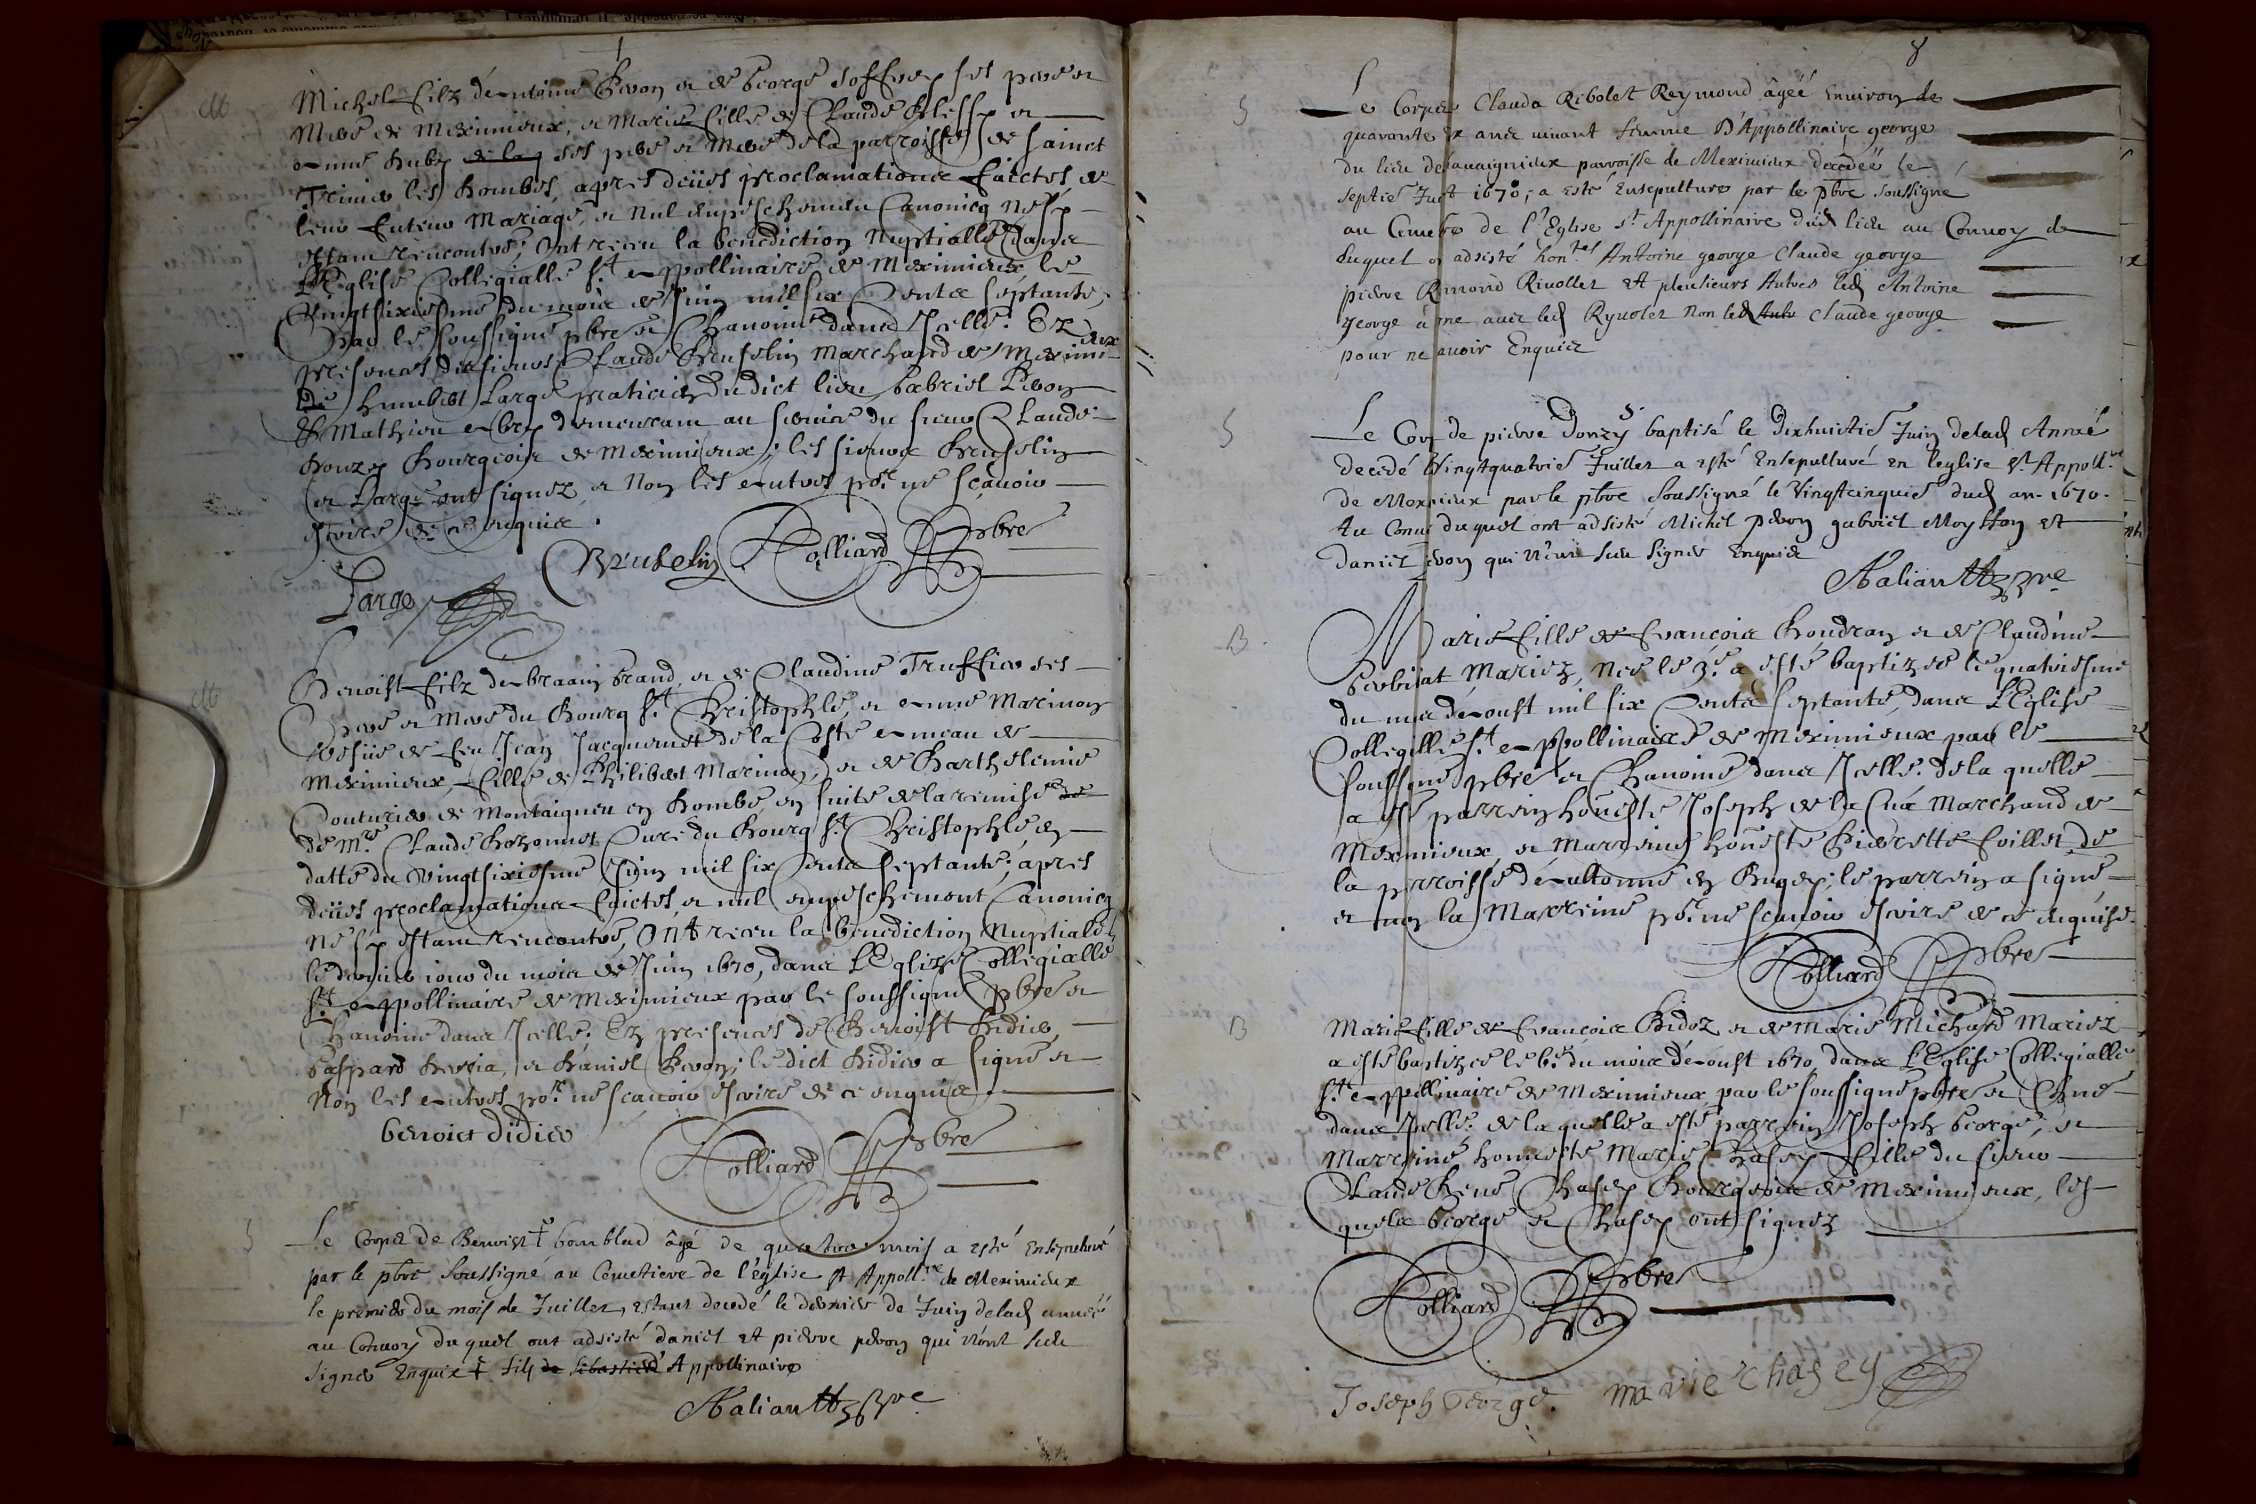 M
Michel filz d'Antoine Pevon et de George Joffrey ses pere et
mere de Meximieux, et Marie fille de Claude
Anne ses pere et mere de la parroisse de Sainct
Trivier les Dombes, apres deües proclamations faictes de
leur futeur Mariage, et nul empeschement Canonicq ne s'y
estant rencontré, ont receu la benediction Nuptialle dans
l'Eglise Collegialle St Appollinaire de Meximieux le
vingtsixiesme du mois de Juin mil six Cents septante,
par le soussigné pbre et Chanoine dans Icelle. Ez
presences des sieurs Claude Breuselin Marchand de Meximieux
Humbert Large praticien dudict lieu, Gabriel Pevon
et Mathieu demeurant au service du sieur Claude
Bourgeois de Meximieux; les sieurs Breuselin
et Large ont signez, et Non les Autres por ne sçavoir
escrire de ce enquis.
Large Breuselin Colliard Pbre
M
Benoist filz de Brand, et de Claudine Truffier ses
pere et mere du Bourg St Christophle, et Anne Marinon
vefue de feu Jean Jacquemet de la Coste
Meximieux, fille de Philibert Marinon, et de Barthelemie
Couturier de Montaigneu en Bombe, en suite de la remise
de Mre Claude Curé du Bourg St Christophle en
datte du vingtsixiesme Juin mil six Cents septante; apres
deües proclamations faictes, et nul empeschement Canonicq
ne s'y estant rencontré, Ont receu la benediction Nuptiale
le dernier jour du mois de Juin 1670, dans l'Eglize Collegialle
St Appollinaire de Meximieux par le soussigné pbre et
Chanoine dans Icelle. Ez presences de Benoist Didier,
Gaspard et Daniel Pevon; le dict Didier a signé et
Non les Autres por ne sçavoir escrire de ce enquis
benoict didier
Colliard Pbre
S
Le Corps de Benoist + bomblad âgé de quatre mois a esté Ensepulturé
par le pbre Soussigné au Cemetiere de l'église St Appollre de Meximieux
le premier du mois de Juillet, estant decedé le dernier de Juin delad année
au Convoy duquel ont adsisté daniel et pierre pevon qui n'ont sceu
signer Enquis + fils de sebastien Appollinaire
pbre
8
S
Le Corps de Clauda Rebolet Reymond âgée Environ de
quarante ans vivant femme D'Appollinaire george
du lieu parroisse de Meximieux decedée le
septie 1670; a esté Ensepulturé par le pbre Soussigné
au Cemetre de l'Eglise St Appollinaire dud lieu au Convoy
duquel adsisté honnes Antoine george Claude george
pierre Rivollet et plusieurs Autres led Antoine
george avec led Ryvolet Non led Claude george
pour ne avoir Enquis
S
Le Corps de pierre Donzy baptisé le Dixhuictie Juin delad Année
decedé Vingtquatrie Juillet a esté Ensepulturé en l'eglise St Appollre
de Meximieux par le pbre Soussigné le Vingtcinquie dud an 1670.
Au Convoy duquel ont adsisté Michel pevon gabriel et
Daniel pevon qui n'ont sceu signer Enquis
pbre
B
Marie fille de François Boudran et de Claudine
Mariez, Née le 3e a esté baptizée le quatriesme
du mois d'Aoust mil six Cents septante, dans L'Eglise
Collegialle St Appollinaire de Meximieux par le
soussigné pbre et Chanoine dans Icelle. De la quelle
a esté parrein honeste Joseph de la Cua Marchand de
Meximieux, et Marreine honeste Pierrette
la parroisse en Bugey; le parrein a signé
et non la Marreine por ne sçavoir escrire de ce enquise.
Colliard Pbre
B
Marie fille de François Bidoz et de Marie Michard Mariez
a esté baptizée le 6e du mois d'Aoust 1670, dans l'Eglise Collegialle
St Appollinaire de Meximieux, par le soussigné pbre et Chne
dans Icelle. De la quelle a esté parrein Joseph George, et
Marreine honneste Marie Chasey fille du sieur
Claude René Chasey Bourgeois de Meximieux, les
quels George et Chasey ont signez
Colliard Pbre
Joseph George. marie chasey